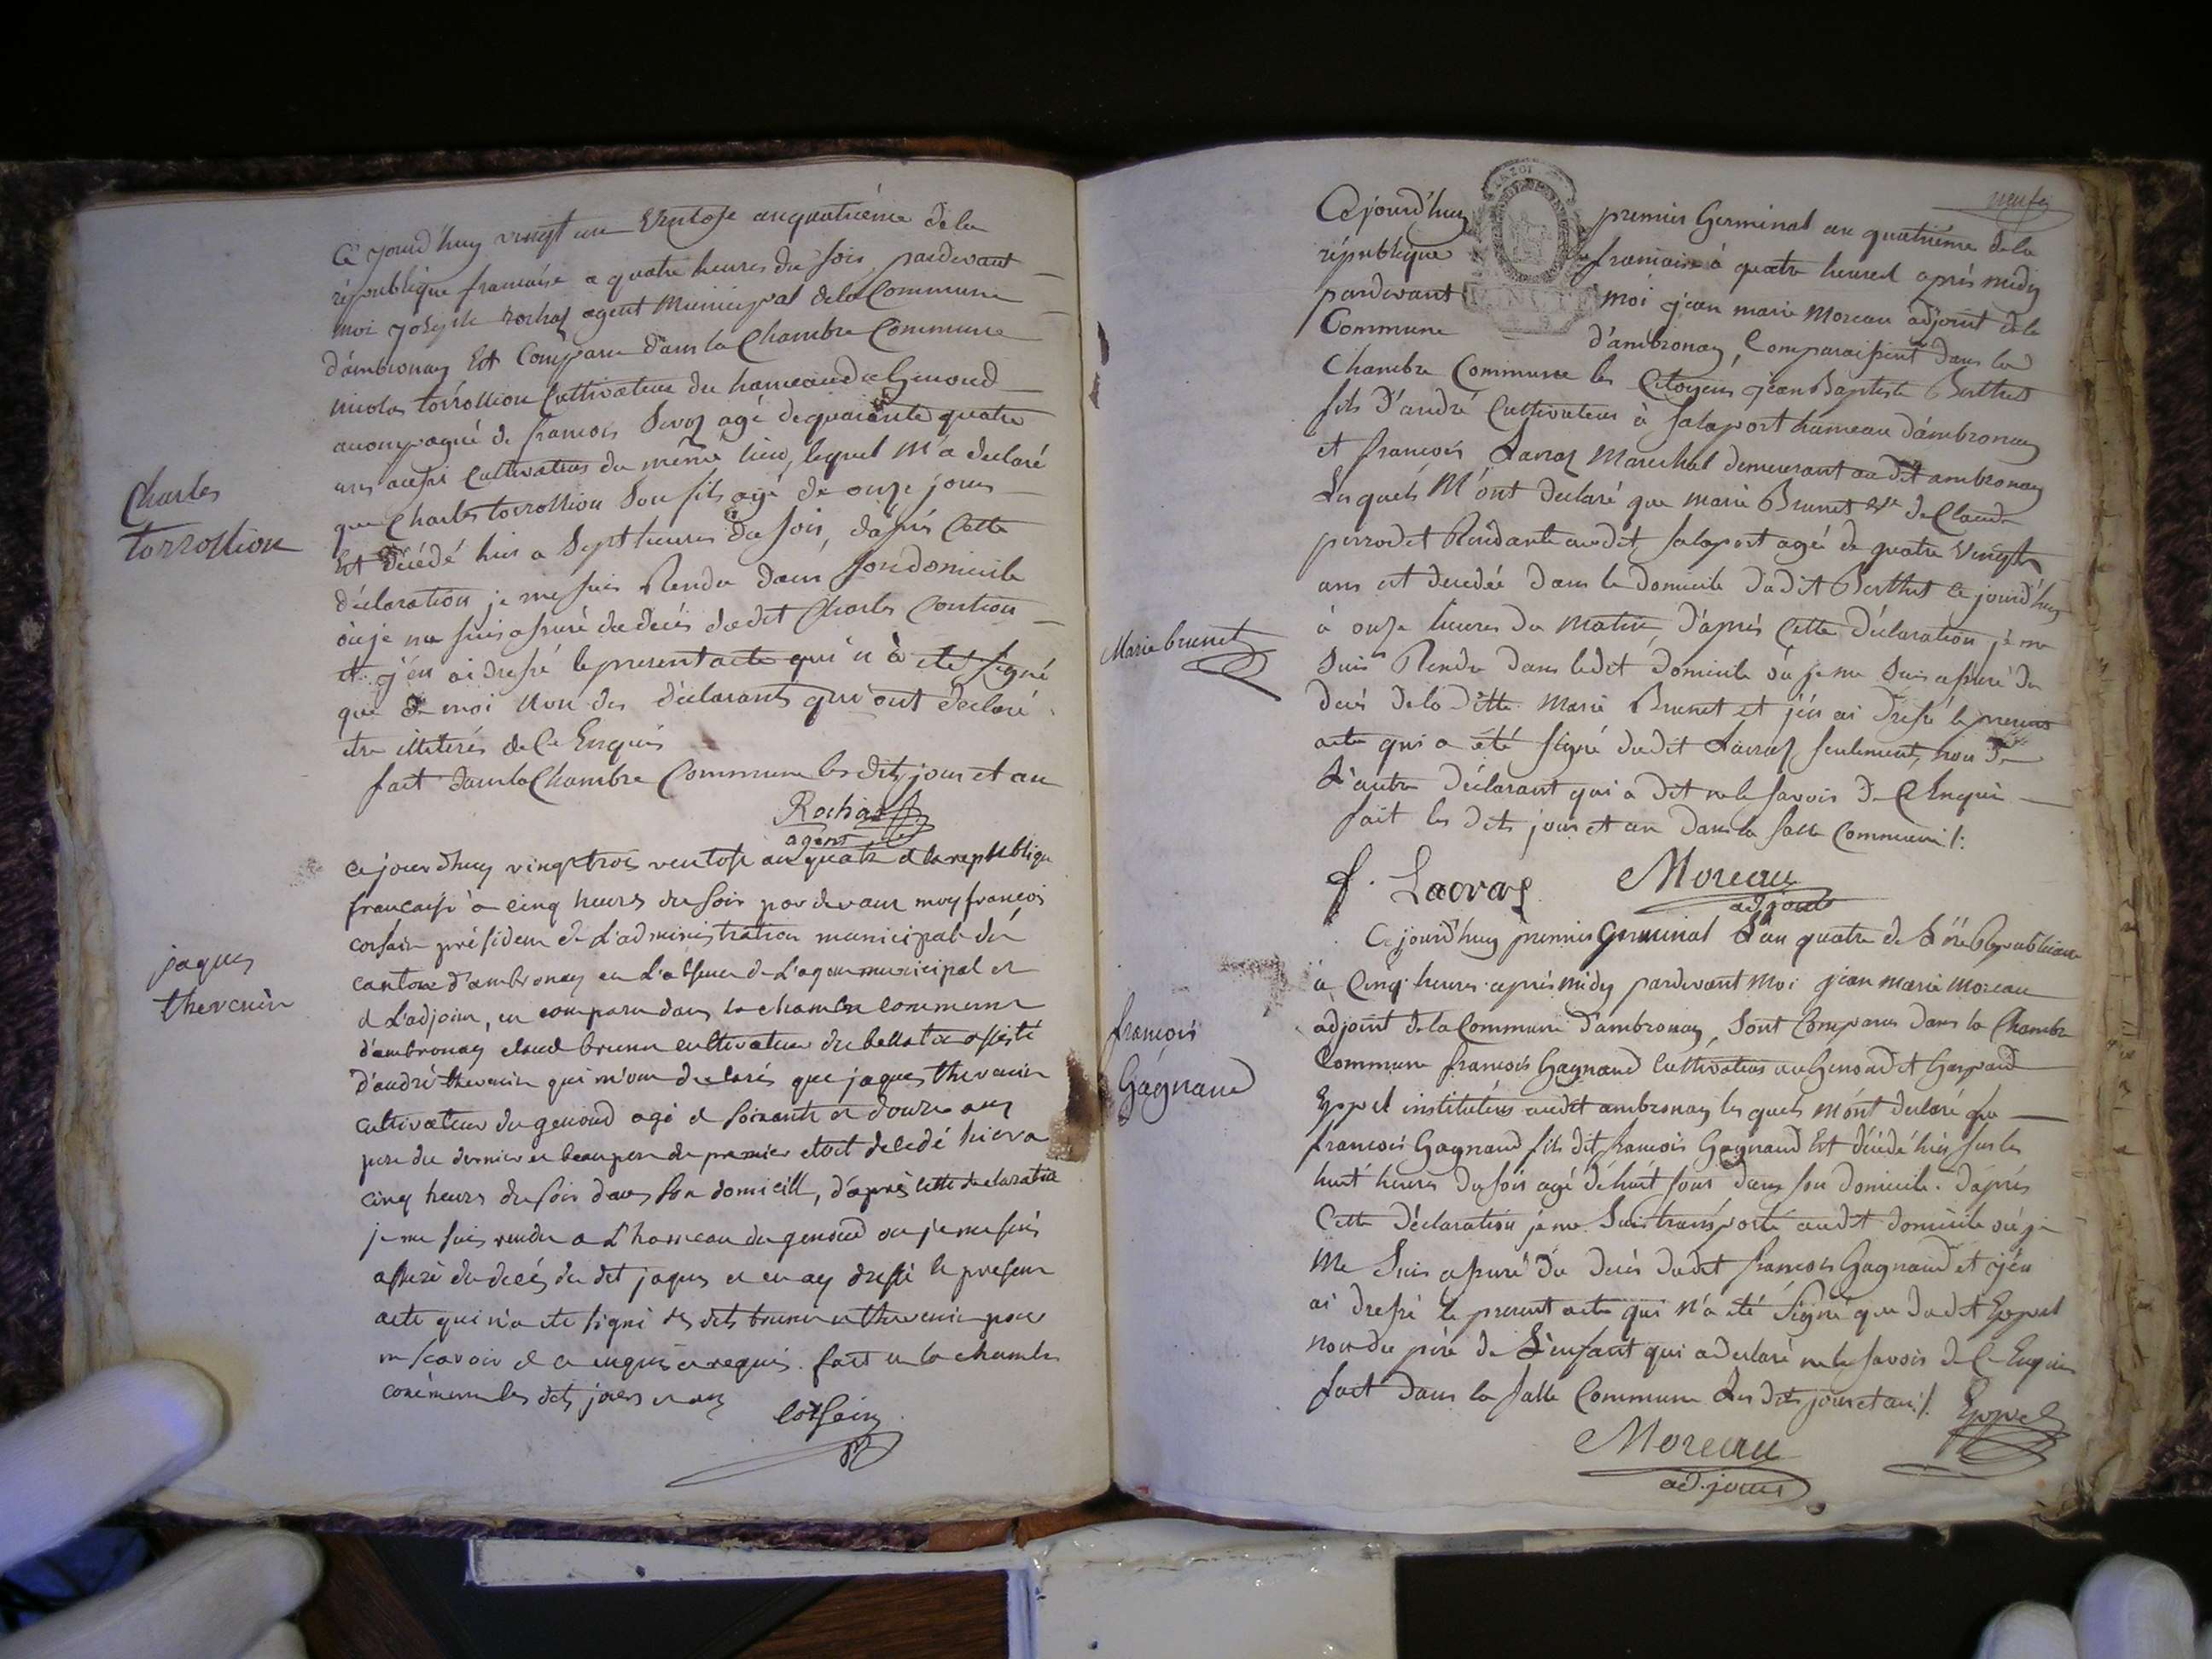 Ce jourd'huy vingt un Ventose an quatrième de la
république francaise a quatre heures du soir pardevant
moi joseph rochas agent Municipal de la Commune
d'ambronay Est Comparu dans la Chambre Commune
nicolas torrollion Cultivateur du hameau du Genoud
accompagné de francois agé de quarante quatre
ans aussi Cultivateur du même lieu, lequel M'a declaré
que Charles torrollion Son fils agé de onze jours
Est décédé hier a Sept heures du soir, daprès Cette
déclaration je me suis Rendu dans son domicile
où je me suis assuré du decés dudit Charles
et j'en ai dressé le present acte qui n'à été signé
que de moi Non des déclarants qui ont déclaré
etre illiterés de Ce Enquis
fait dans la Chambre Commune les dits jour et an
Rochas
agent
Charles
torrollion
ce jourdhuy vingt trois ventose an quatre de la republique
francaise à cinq heures du soir par devant moy francois
corsain président de L'administration municipale du
canton d'ambronay en L'absence de L'agent municipal et
de L'adjoint, est comparu dans la chambre commune
d'ambronay claud brunet cultivateur du bellaton assisté
d'andré thevenin qui m'ont declarés que jaques thevenin
cultivateur du genoud agé de soixante et douze ans
pere du dernier et beaupere du premier etoit decedé hier a
cinq heures du soir dans son domicille, d'après cette declaration
je me suis rendu a L'hameau du genoud ou je me suis
assuré du decés du dit jaques et en ay dressé le present
acte qui n'a ete signé des dits brunet et thevenin pour
ne scavoir de ce enquis et requis. fait en la chambre
commune les dits jours et an
corsain
jaques
thevenin
neuf
Ce jourd'huy premier Germinal an quatrième de la
république francaise à quatre heures après midy
pardevant moi jean marie Moreau adjoint de la
Commune d'ambronay, Comparaissent dans la
Chambre Commune les Citoyens jean Baptiste Berthet
fils d'andré Cultivateur à Salaport hameau d'ambronay
et francois Lavraz Marechal demeurant audit ambronay
Lesquels M'ont declaré que marie Brunet Ve de Claude
perrodet Residante audit Salaport agée de quatre Vingts
ans est decedée dans le domicile dudit Berthet Ce jourd'huy
à onze heures du matin, d'après Cette déclaration je me
Suis Rendu dans ledit domicile où je me Suis assuré du
decès de la ditte Marie Brunet et j'en ai dressé le present
acte qui a été signé dudit Lavraz seulement, non de
L'autre déclarant qui a dit ne le savoir de Ce Enquis
fait les dits jour et an dans la salle Commune /.
Marie brunet
f. Lavraz Moreau
adjoint
Ce jourd'huy premier Germinal L'an quatre de L'ère Republicaine
à Cinq heures après midy pardevant Moi jean marie Moreau
adjoint de la Commune d'ambronay, Sont Comparus dans la Chambre
Commune francois Gagnaud Cultivateur au Genoud et Gaspard
Eppel instituteur audit ambronay lesquels m'ont declaré que
francois Gagnaud fils dit francois Gagnaud Est décédé hier sur les
huit heures du soir agé de huit jour dans son domicile. d'après
Cette déclaration je me Suis transporté audit domicile où je
Me Suis assuré du decès dudit francois Gagnaud et j'en
ai dressé le present acte qui n'a été signé que dudit Eppel
non du père de L'enfant qui a declaré ne le savoir de Ce Enquis
fait dans la salle Commune Les dits jour et an /.
francois
Gagnaud
Eppel
Moreau
adjoint